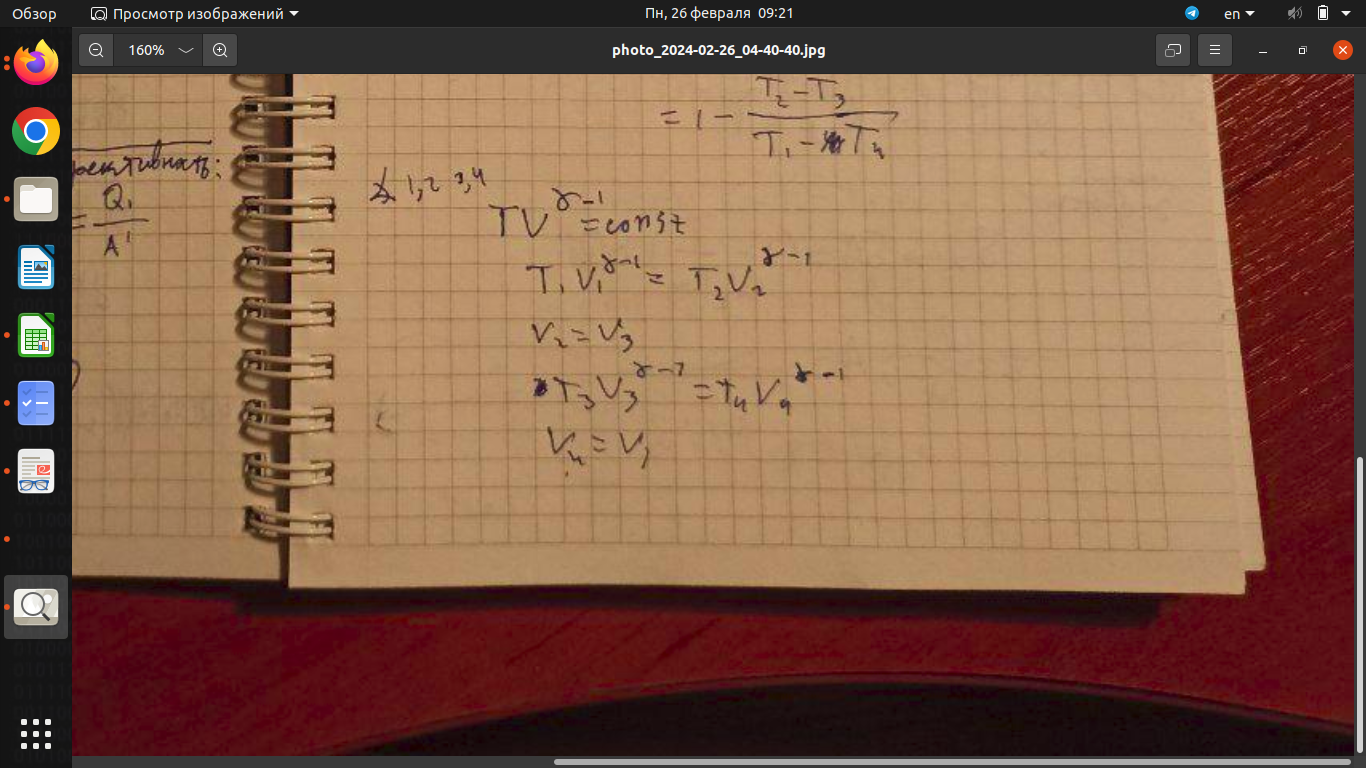 Обзор
Просмотр изображений
Пн, 26 февраля 09:21
en
160%
photo_2024-02-26_04-40-40.jpg
= Q₁ / A'
= 1 - (T₂ - T₃) / (T₁ - T₄)
1,2 3,4
TV^(γ-1) = const
T₁V₁^(γ-1) = T₂V₂^(γ-1)
V₂ = V₃
T₃V₃^(γ-1) = T₄V₄^(γ-1)
V₄ = V₁